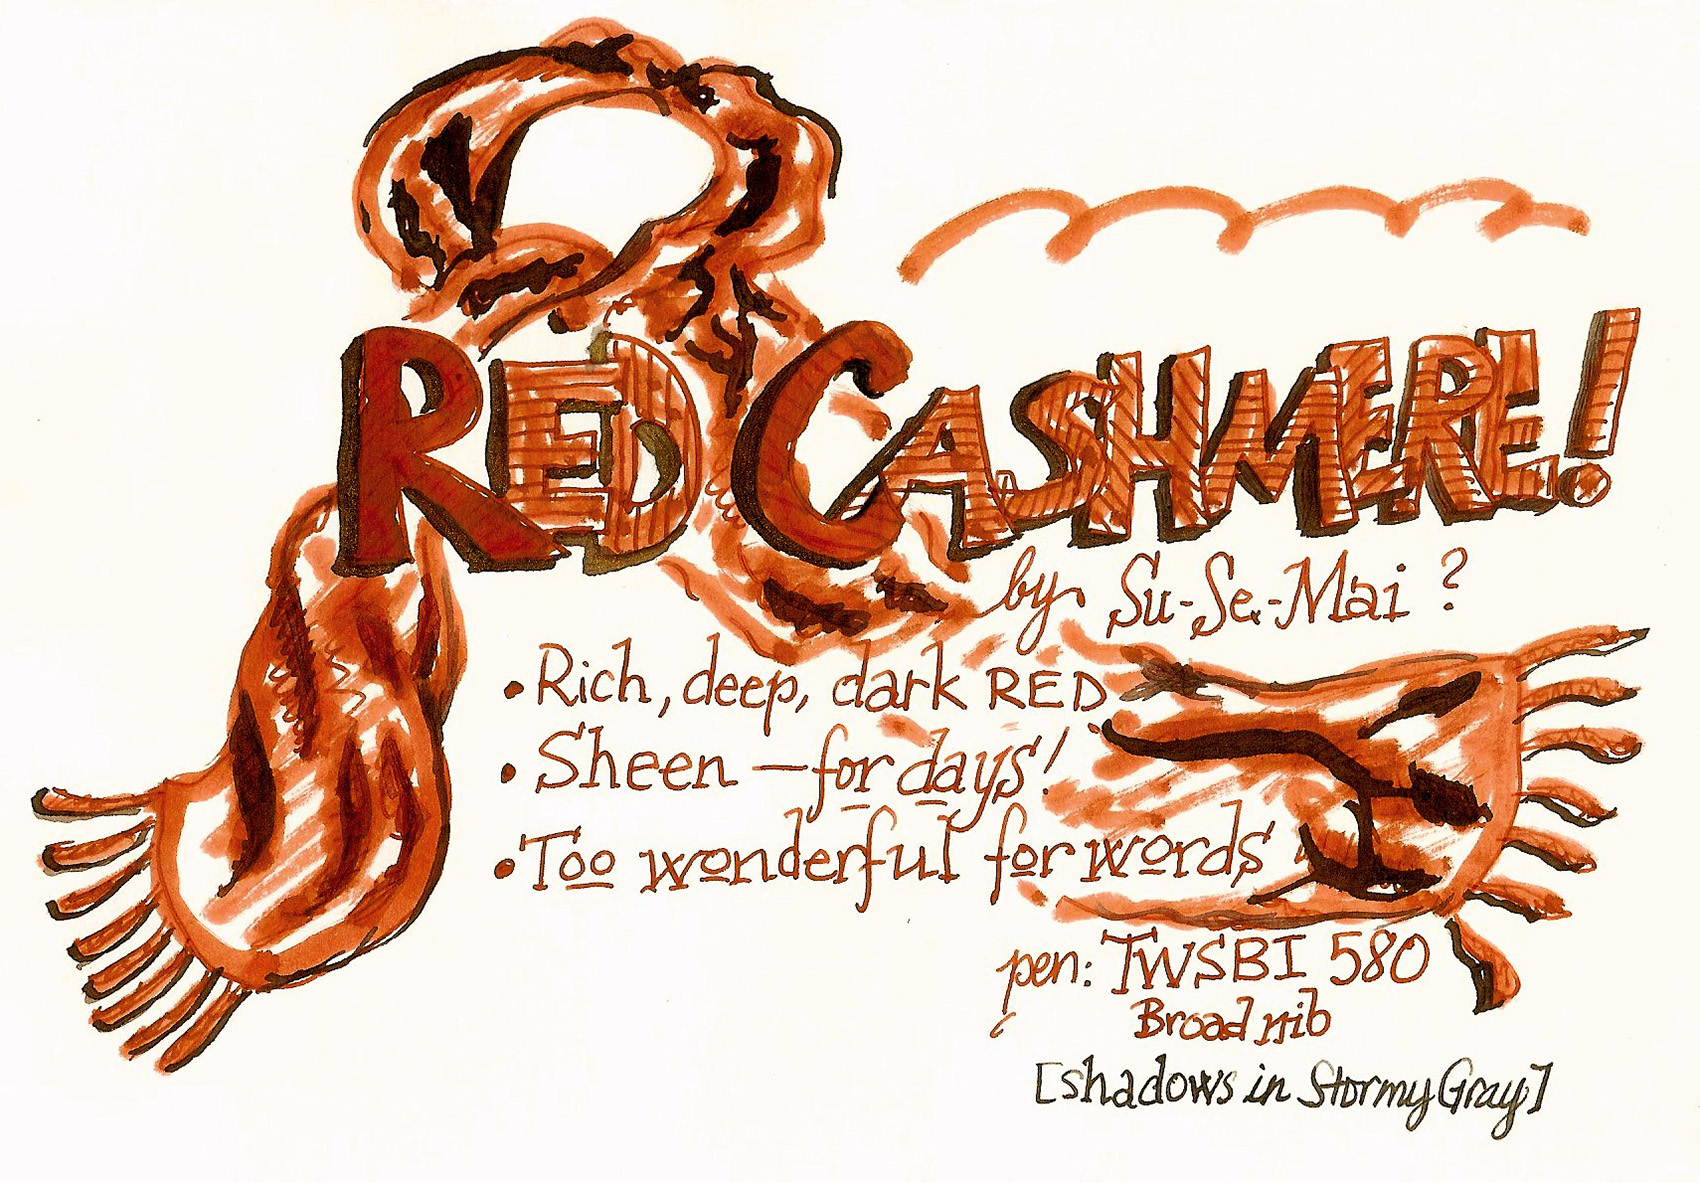 RED CASHMERE!
by Su-Se-Mai ?
• Rich, deep, dark RED
• Sheen — for days!
• Too wonderful for words
pen: TWSBI 580
Broad nib
[shadows in Stormy Gray]